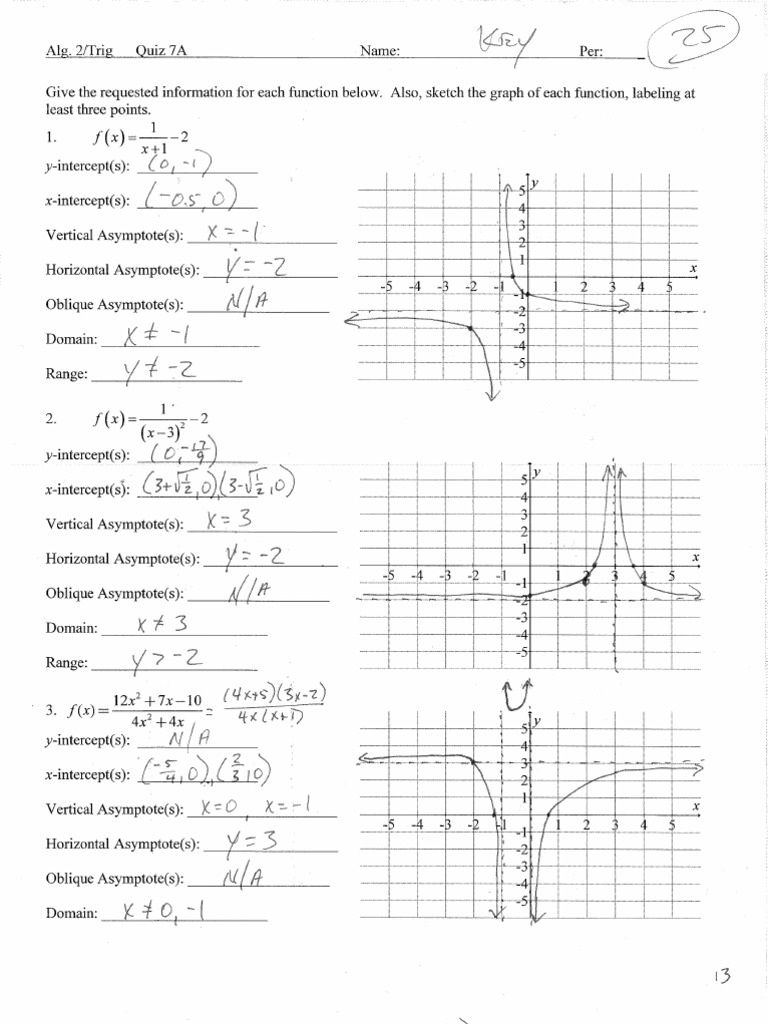 Alg. 2/Trig Quiz 7A Name: KEY Per: 25
Give the requested information for each function below. Also, sketch the graph of each function, labeling at
least three points.
1. f(x) = 1/(x+1) − 2
y-intercept(s): (0, -1)
x-intercept(s): (-0.5, 0)
Vertical Asymptote(s): x = -1
Horizontal Asymptote(s): y = -2
Oblique Asymptote(s): N/A
Domain: x ≠ -1
Range: y ≠ -2
y
5
4
3
2
1
x
-5 -4 -3 -2 -1 1 2 3 4 5
-1
-2
-3
-4
-5
2. f(x) = 1/(x−3)² − 2
y-intercept(s): (0, -17/9)
x-intercept(s): (3+√1/2, 0) (3-√1/2, 0)
Vertical Asymptote(s): x = 3
Horizontal Asymptote(s): y = -2
Oblique Asymptote(s): N/A
Domain: x ≠ 3
Range: y > -2
y
5
4
3
2
1
x
-5 -4 -3 -2 -1 1 2 3 4 5
-1
-2
-3
-4
-5
3. f(x) = (12x² + 7x − 10)/(4x² + 4x) = (4x+5)(3x-2)/4x(x+1)
y-intercept(s): N/A
x-intercept(s): (-5/4, 0), (2/3, 0)
Vertical Asymptote(s): x=0, x=-1
Horizontal Asymptote(s): y = 3
Oblique Asymptote(s): N/A
Domain: x ≠ 0, -1
y
5
4
3
2
1
x
-5 -4 -3 -2 -1 1 2 3 4 5
-1
-2
-3
-4
-5
13